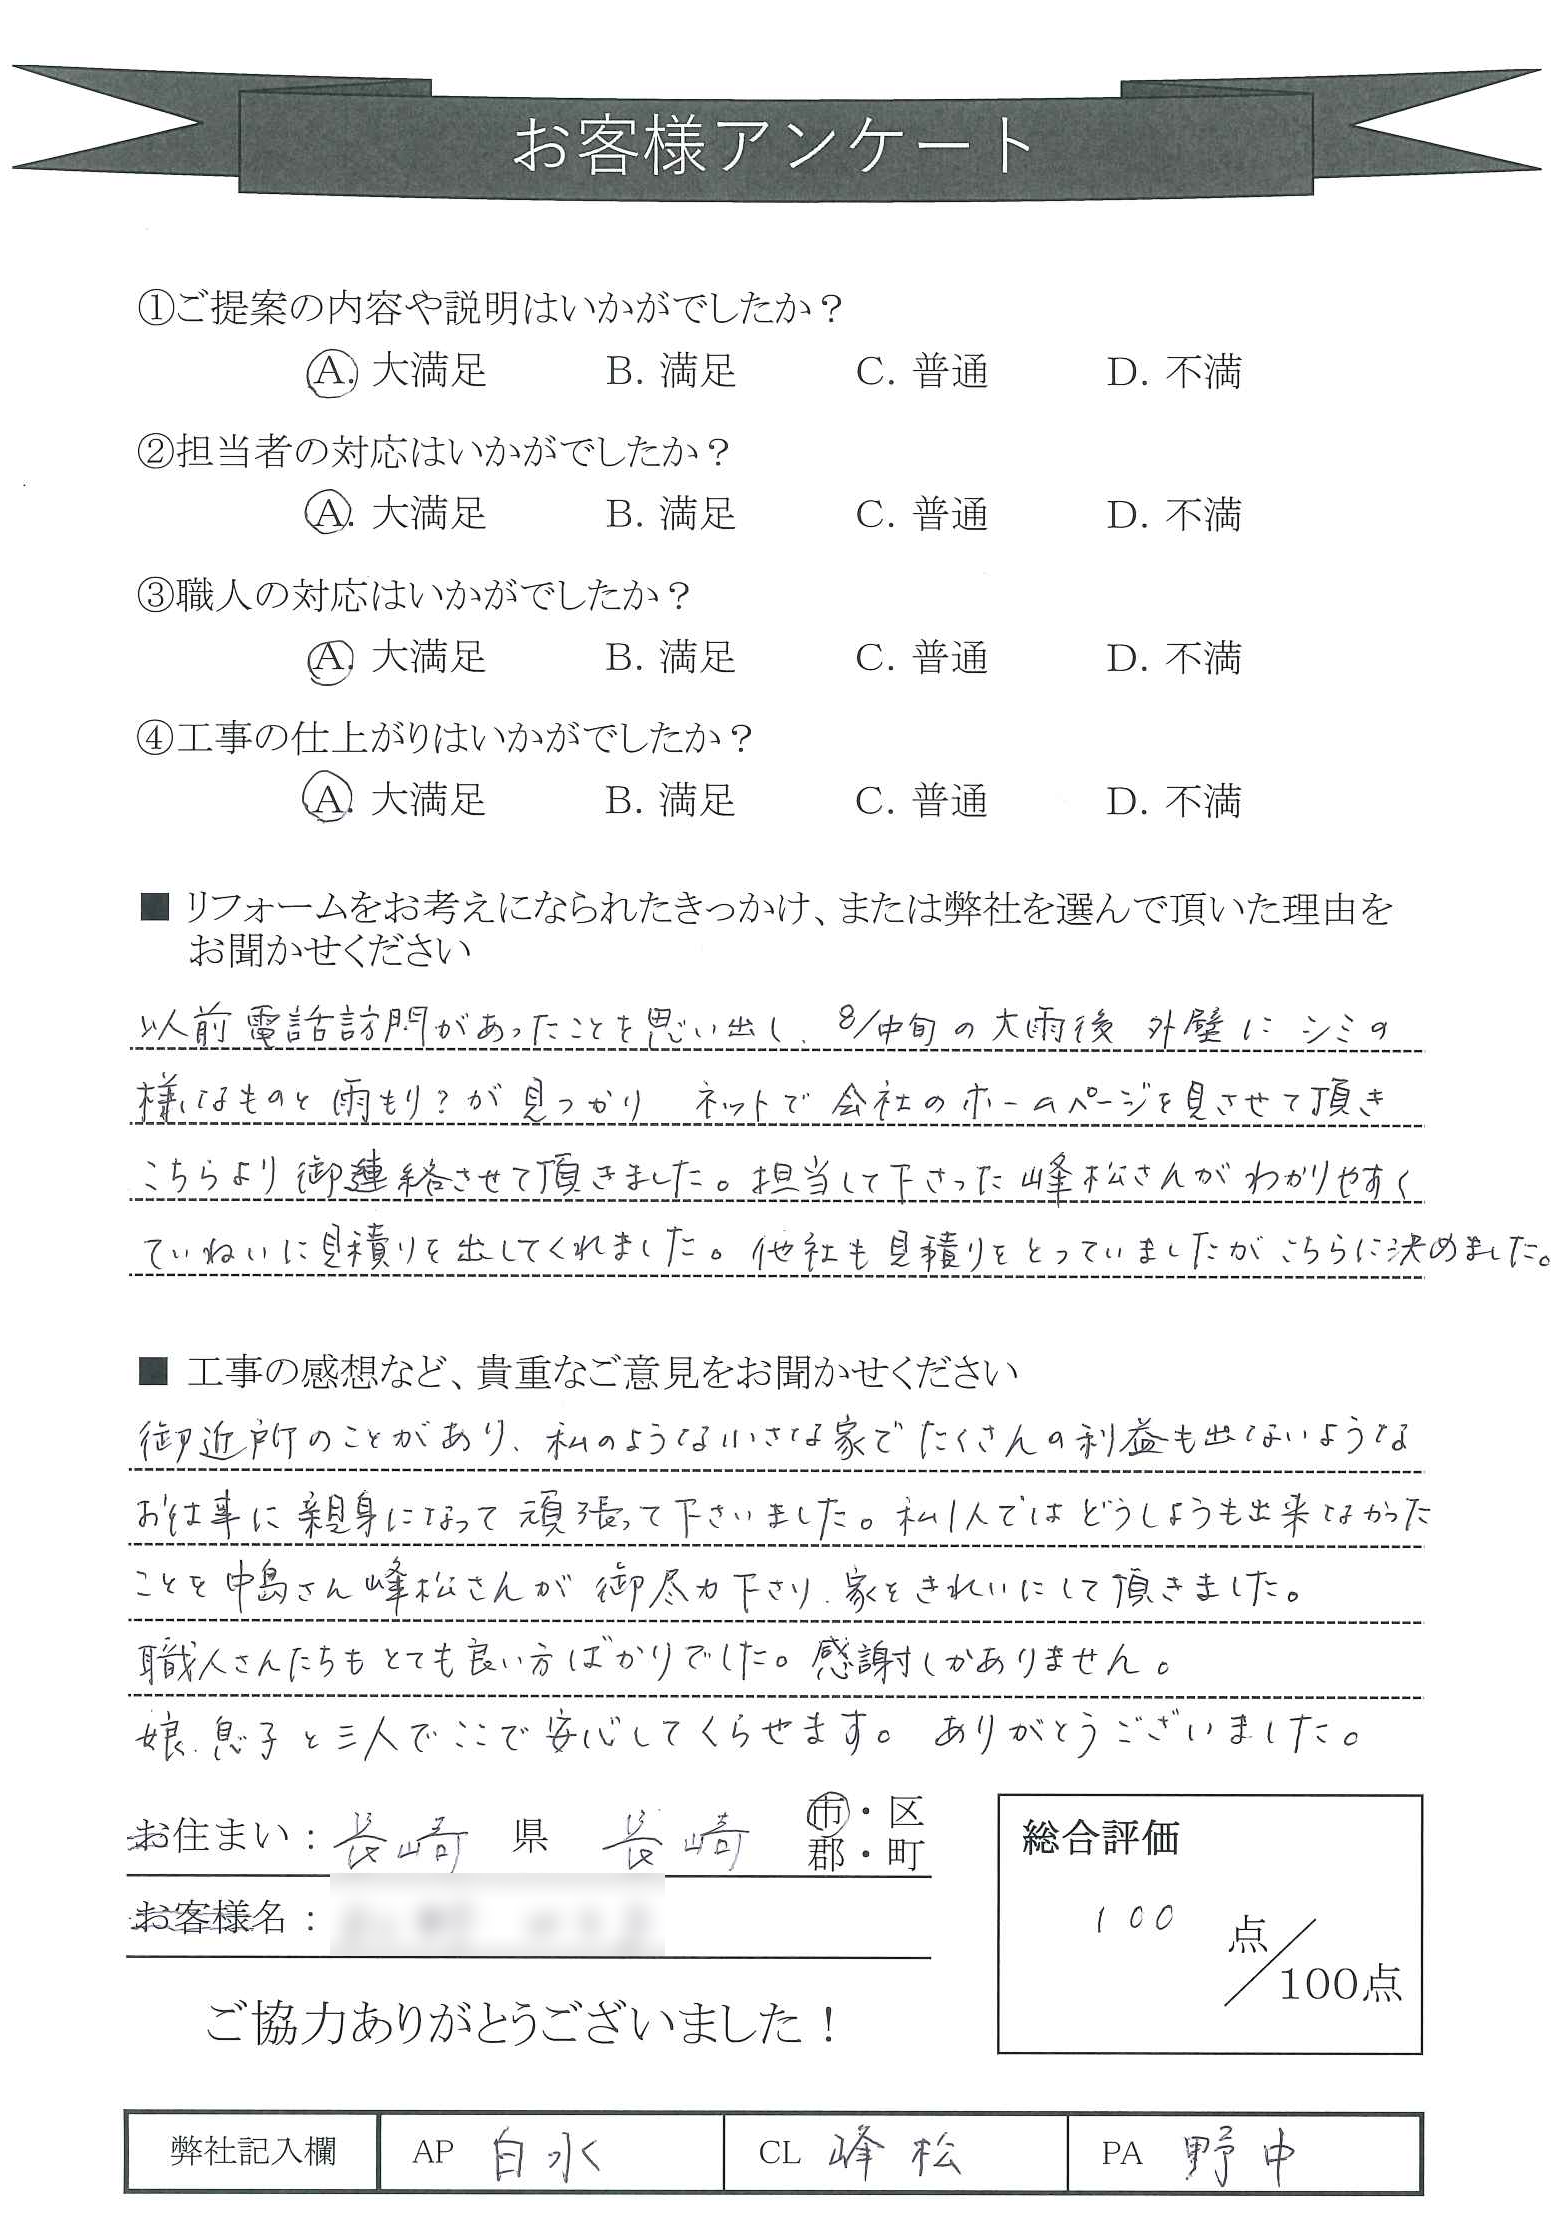 お客様アンケート
①ご提案の内容や説明はいかがでしたか？
A. 大満足 B. 満足 C. 普通 D. 不満
②担当者の対応はいかがでしたか？
A. 大満足 B. 満足 C. 普通 D. 不満
③職人の対応はいかがでしたか？
A. 大満足 B. 満足 C. 普通 D. 不満
④工事の仕上がりはいかがでしたか？
A. 大満足 B. 満足 C. 普通 D. 不満
■ リフォームをお考えになられたきっかけ、または弊社を選んで頂いた理由を
お聞かせください
以前電話訪問があったことを思い出し、8/中旬の大雨後 外壁に シミの
様なものと雨もり?が見つかり ネットで会社のホームページを見させて頂き
こちらより御連絡させて頂きました。担当して下さった峰松さんがわかりやすく
ていねいに見積りを出してくれました。他社も見積りをとっていましたがこちらに決めました。
■ 工事の感想など、貴重なご意見をお聞かせください
御近所のことがあり、私のような小さな家でたくさんの利益も出ないような
お仕事に親身になって頑張って下さいました。私1人ではどうしようも出来なかった
ことを中島さん峰松さんが御尽力下さり、家をきれいにして頂きました。
職人さんたちもとても良い方ばかりでした。感謝しかありません。
娘、息子と三人でここで安心してくらせます。ありがとうございました。
お住まい：長崎 県 長崎 市・区
郡・町
お客様名：
総合評価
100 点／100点
ご協力ありがとうございました！
弊社記入欄 AP 白水 CL 峰松 PA 野中